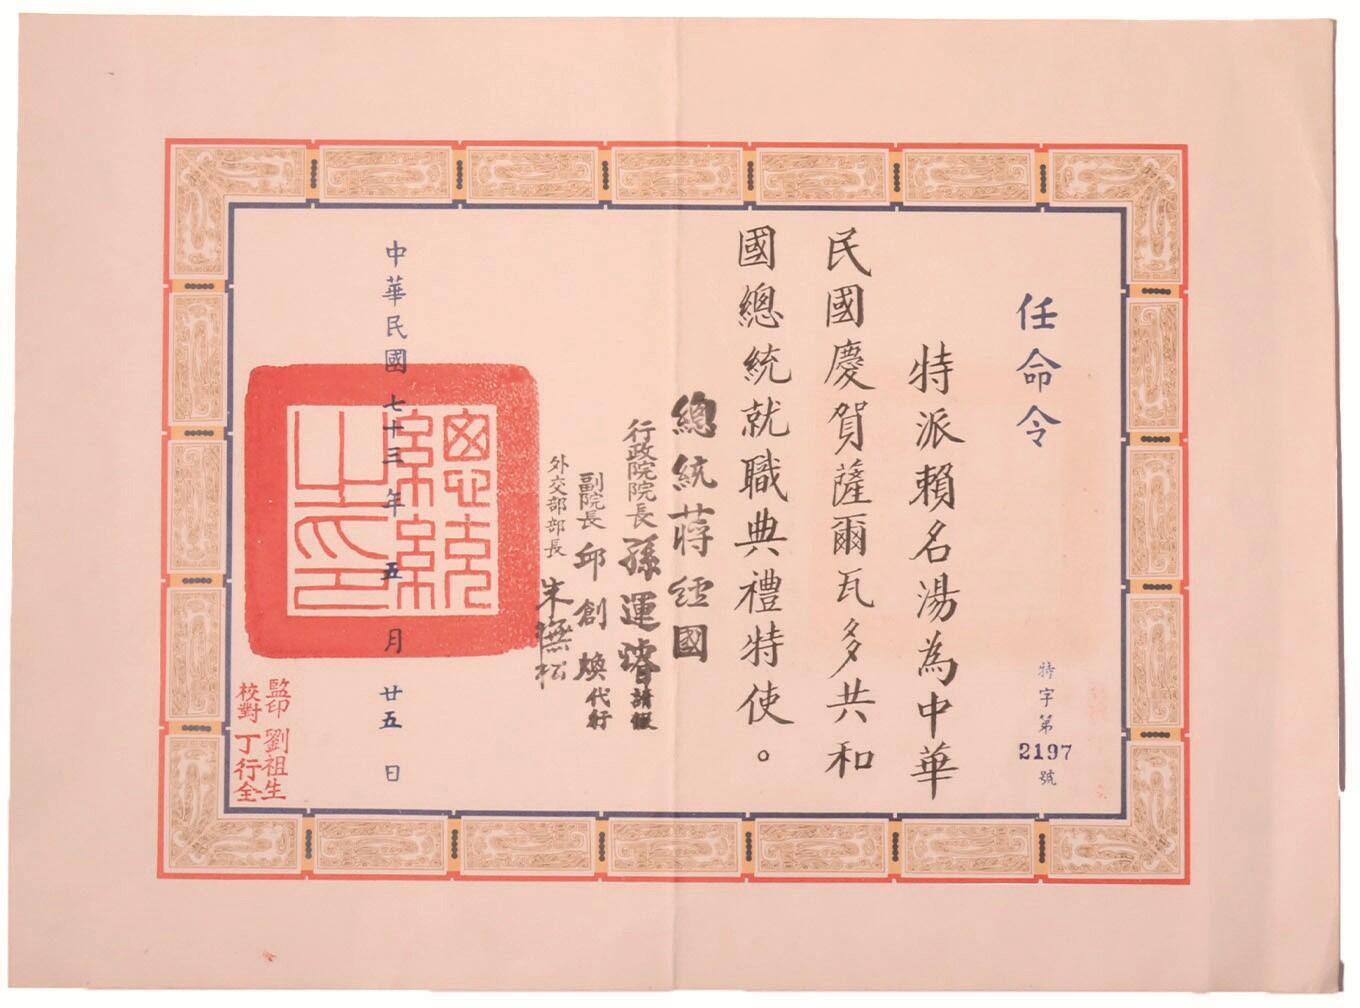 任命令
特派賴名湯為中華
民國慶賀薩爾瓦多共和
國總統就職典禮特使。
總統蔣經國
行政院院長孫運璿請假
副院長邱創煥代行
外交部部長朱撫松
中華民國七十三年五月廿五日
總統之印
監印劉祖生
校對丁行全
特字第2197號